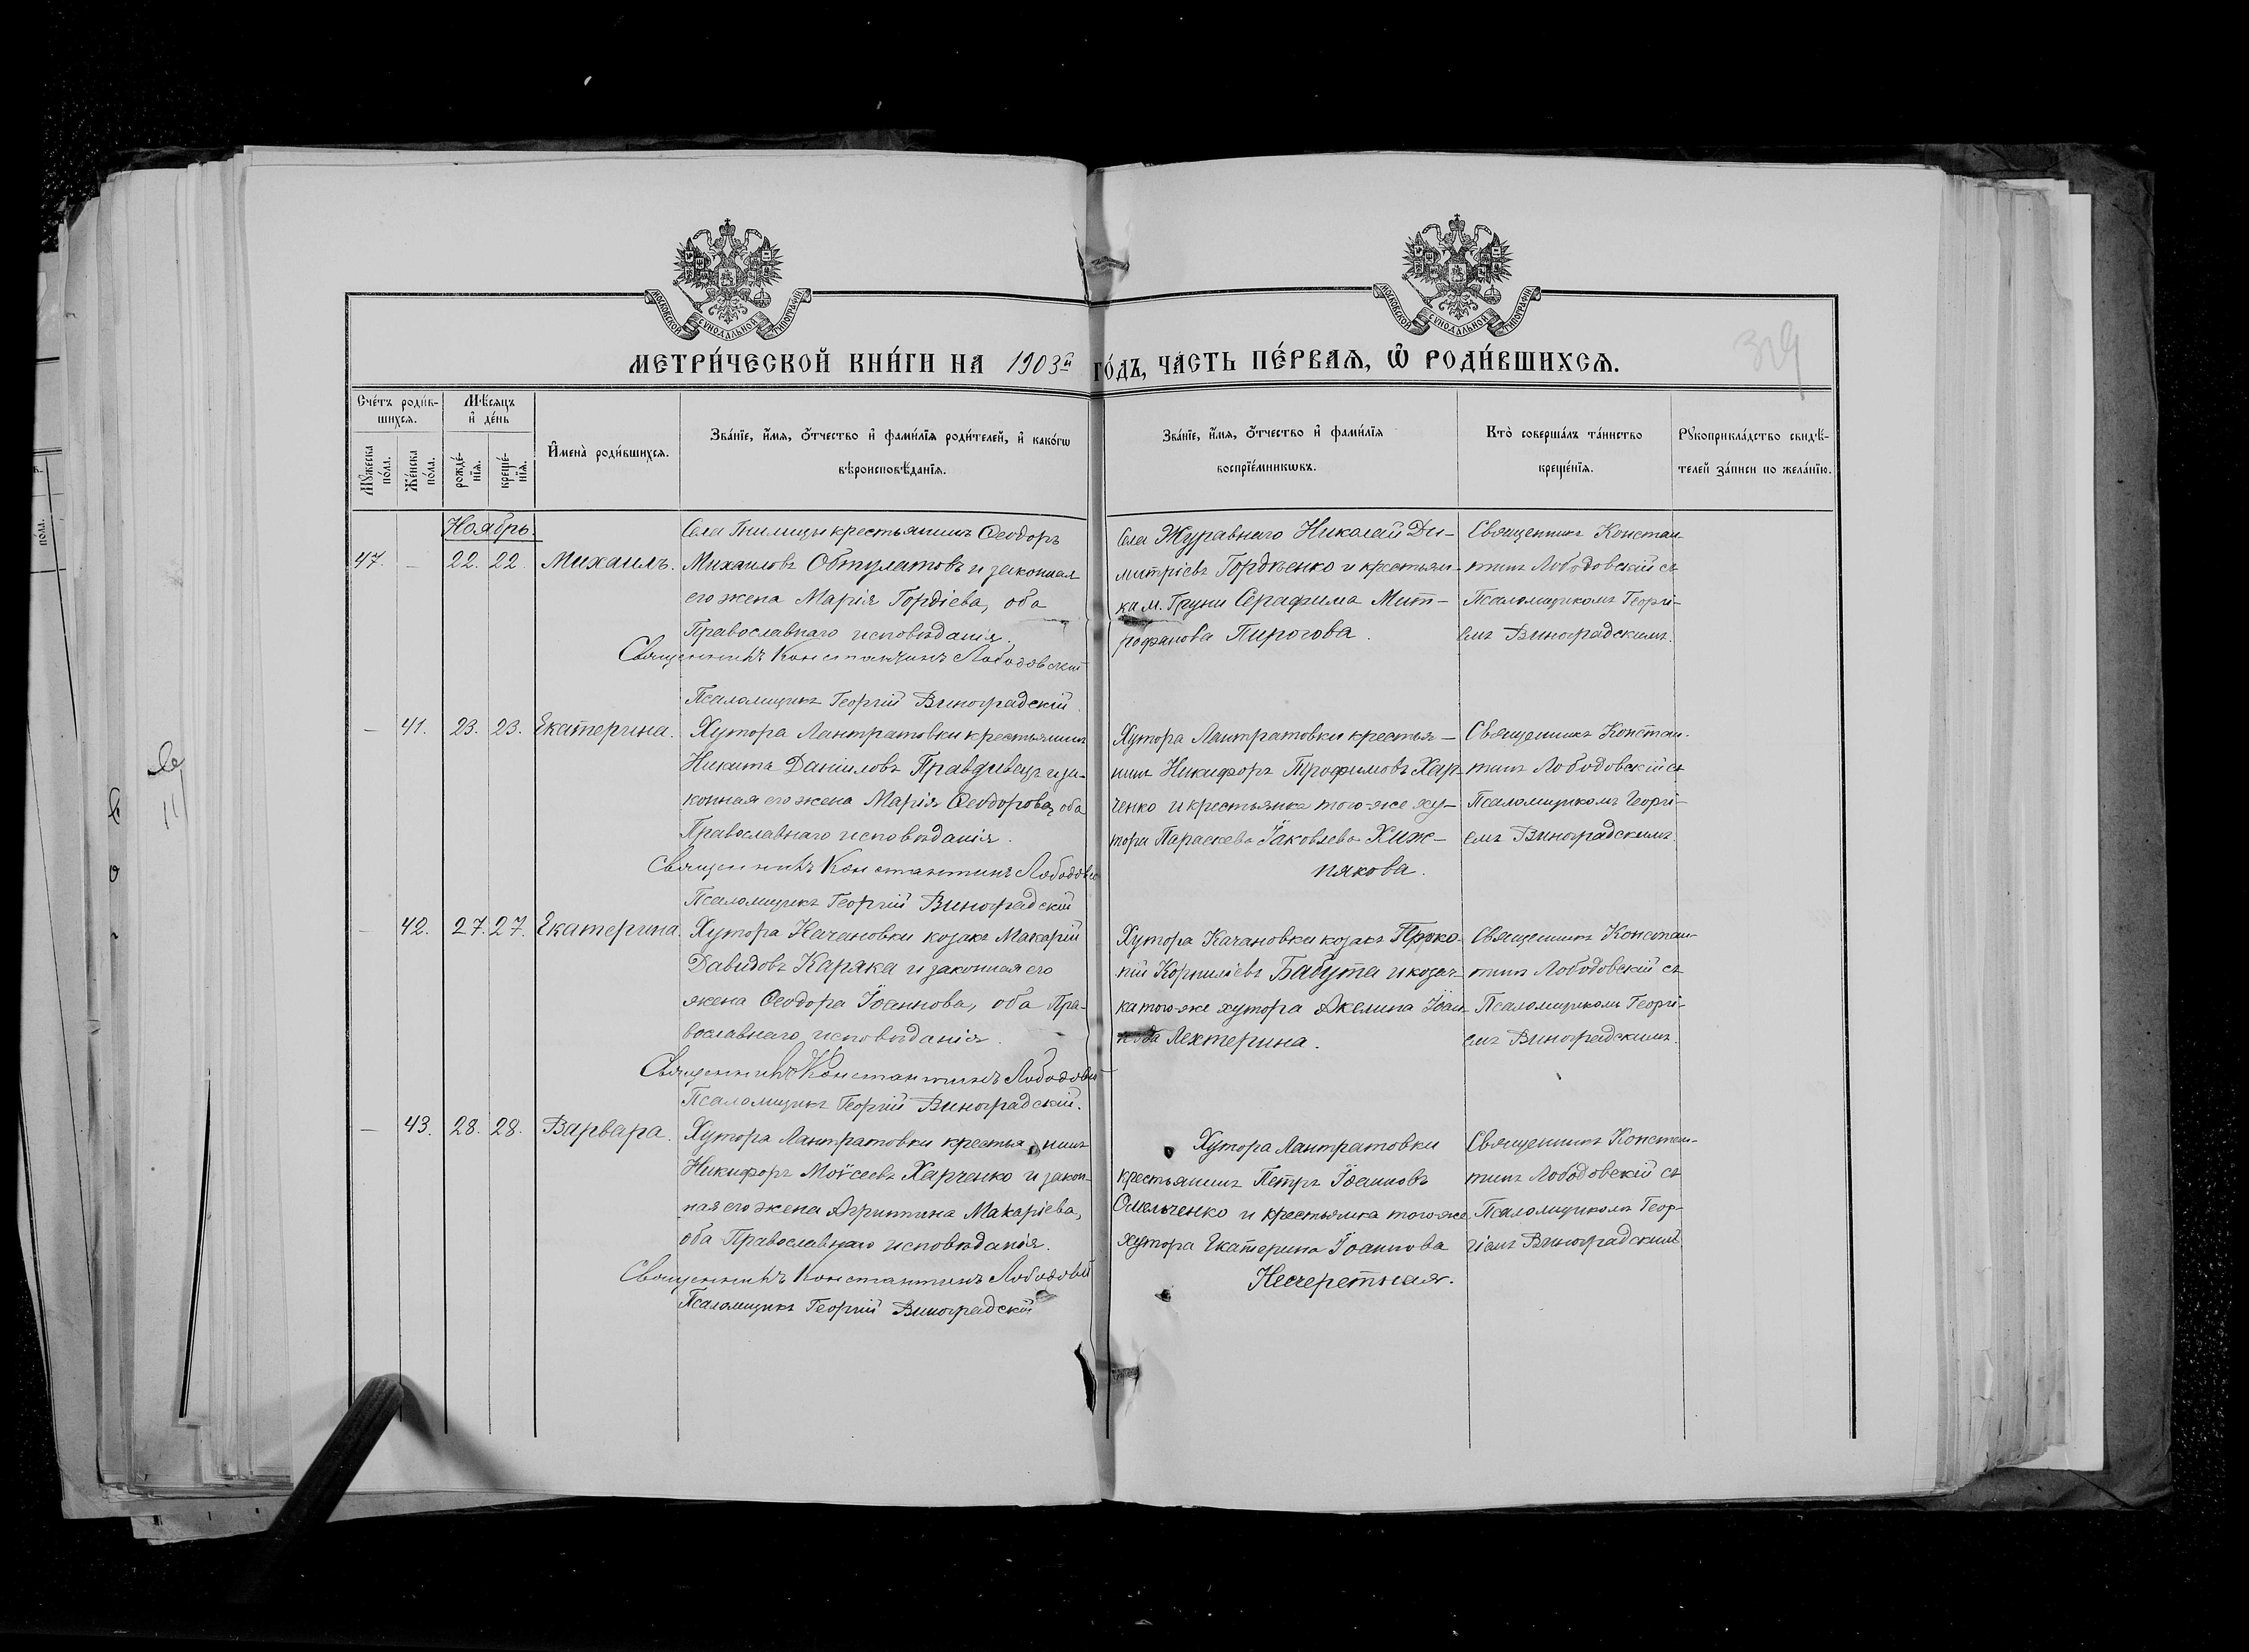 МОСКОВСКОЙ СУНОДАЛЬНОЙ ТИПОГРАФІИ
МОСКОВСКОЙ СУНОДАЛЬНОЙ ТИПОГРАФІИ
МЕТРИ́ЧЕСКОЙ КНИ́ГИ НА 1903й ГО́ДЪ, ЧА́СТЬ ПЕ́РВАѦ, Ѿ РОДИ́ВШИХСѦ.
Сче́тъ роди́в-
шихсѧ.
Мѣ́сѧцъ
и҆ де́нь
Мꙋ́жеска
по́ла.
Же́нска
по́ла.
рожде́-
нїѧ.
креще́-
нїѧ.
И҆мена̀ роди́вшихсѧ.
Зва́нїе, и҆́мѧ, ѻ҆́тчество и҆ фами́лїѧ роди́телей, и҆ како́гѡ
вѣроисповѣ́данїѧ.
Зва́нїе, и҆́мѧ, ѻ҆́тчество и҆ фами́лїѧ
воспрїе́мникѡвъ.
Кто̀ соверша́лъ та́инство
креще́нїѧ.
Рꙋкоприкла́дство свидѣ́-
телей за́писи по жела́нїю.
Ноябрь.
47. — 22. 22. Михаилъ.
Села Гнилицы крестьянинъ Ѳеодоръ
Михаиловъ Обтулатовъ и законная
его жена Марія Гордіева, оба
Православнаго исповѣданія.
Священникъ Константинъ Лободовскій
Псаломщикъ Георгій Виноградскій.
Села Журавнаго Николай Ди-
митріевъ Гордѣенко и крестьян-
ка м. Груни Серафима Мит-
рофанова Пирогова.
Священникъ Констан-
тинъ Лободовскій съ
Псаломщикомъ Георгі-
емъ Виноградскимъ.
— 41. 23. 23. Екатерина.
Хутора Лантратовки крестьянинъ
Никита Даніиловъ Правдивецъ и за-
конная его жена Марія Ѳеодорова, оба
Православнаго исповѣданія.
Священникъ Константинъ Лободовск
Псаломщикъ Георгій Виноградскій
Хутора Лантратовки крестья-
нинъ Никифоръ Трофимовъ Хар-
ченко и крестьянка того-же ху-
тора Параскева Іаковлева Хиж-
някова.
Священникъ Констан-
тинъ Лободовскій съ
Псаломщикомъ Георгі-
емъ Виноградскимъ.
— 42. 27. 27. Екатерина.
Хутора Качановки козакъ Макарій
Давидовъ Каряка и законная его
жена Ѳеодора Іоаннова, оба Пра-
вославнаго исповѣданія.
Священникъ Константинъ Лободовск
Псаломщикъ Георгій Виноградскій.
Хутора Качановки козакъ Проко-
пій Корниліевъ Бабута и козач-
ка того-же хутора Акелина Іоан-
нова Лехтерина.
Священникъ Констан-
тинъ Лободовскій съ
Псаломщикомъ Георгі-
емъ Виноградскимъ.
— 43. 28. 28. Варвара.
Хутора Лантратовки крестьянинъ
Никифоръ Моѵсеевъ Харченко и закон-
ная его жена Агриппина Макаріева,
оба Православнаго исповѣданія.
Священникъ Константинъ Лободовскій
Псаломщикъ Георгій Виноградскій
Хутора Лантратовки
крестьянинъ Петръ Іоанновъ
Омельченко и крестьянка того-же
хутора Екатерина Іоаннова
Нечеретная.
Священникъ Констан-
тинъ Лободовскій съ
Псаломщикомъ Геор-
гіемъ Виноградскимъ.